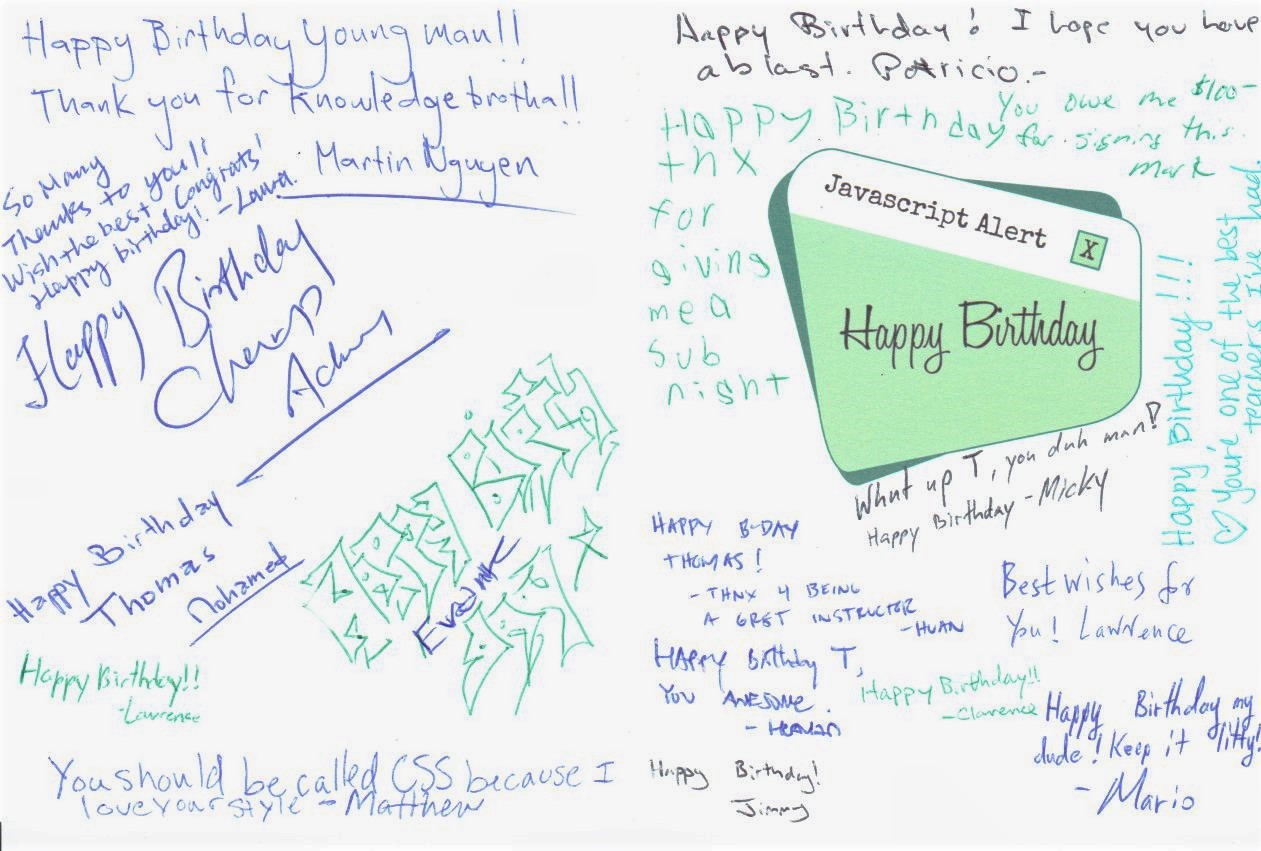 Happy Birthday Young man!!
Thank you for knowledge brotha!!
Martin Nguyen
So Many
Thanks to you!!
Wish the best Congrats!
Happy birthday!. - Laura.
Happy Birthday
Happy Birthday
Thomas
Mohamed
Happy Birthday!!
-Lawrence
You should be called CSS because I
love your style - Matthew
Happy Birthday! I hope you have
a blast. Patricio.-
Happy Birthday
thx
for
giving
me a
sub
night
You owe me $100-
for signing this.
Mark
Javascript Alert
X
Happy Birthday
Happy Birthday!!!
♡ You're one of the best
teachers I've had.
What up T, you duh man!
Happy Birthday - Micky
HAPPY B-DAY
THOMAS!
- THNX 4 BEING
A GRET INSTRUCTOR
- HUAN
Best wishes for
You! Lawrence
HAPPY Birthday T,
YOU AWESOME.
- HERMAN
Happy Birthday!!
-Clarence
Happy Birthday my
dude! Keep it litty!
- Mario
Happy Birthday!
Jimmy